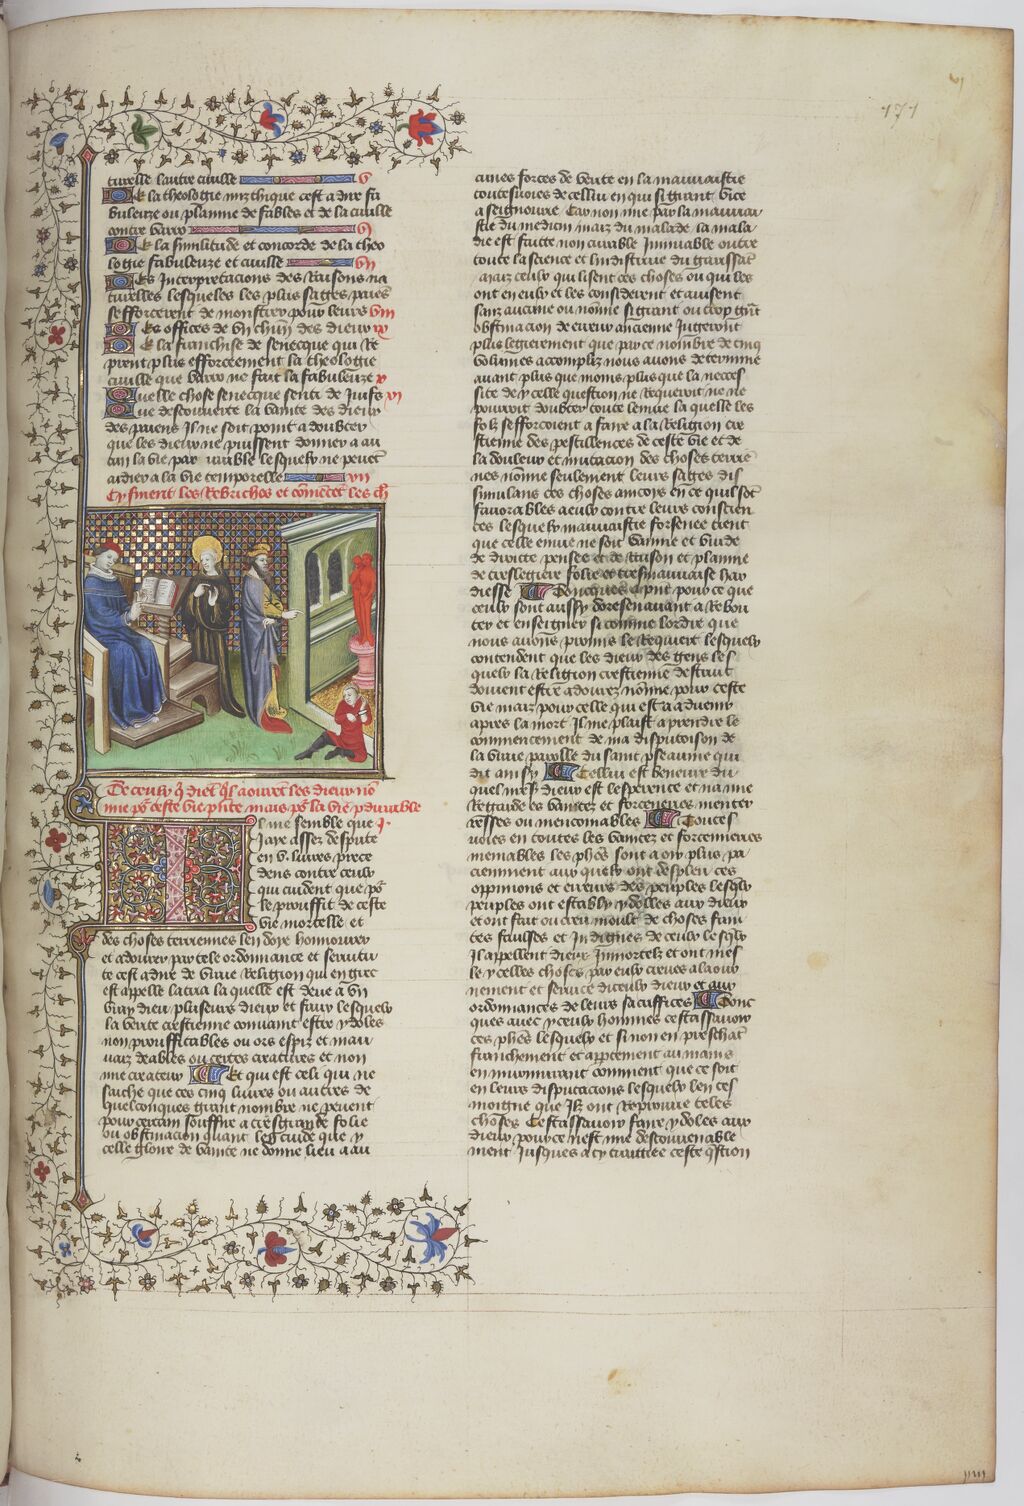 171
turelle lautre ciuille V
De la theologie mithique cest a dire fa
buleuze ou plainne de fables et de la ciuille
contre varro VI
De la similitude et concorde de la theo
logie fabuleuze et ciuille VII
Des Interpretacions des Raisons na
turelles lesqueles les plus sages paiens
sefforcerent de monstrer pour leurs VIII
Des offices de vn chun des dieux IX
De la franchise de senecque qui Re
prent plus efforceement la theologie
ciuille que varro ne fait la fabuleuze X
Quelle chose senecque senti de Juifs XI
Que descouuerte la vanite des dieux
des paiens Il ne soit point a doubter
que les dieux ne puissent donner a au
cun la vie par durable lesquelx ne peuet
aidier a la vie temporelle XII
Cy finent les Rebriches et comencet les ch
De ceulx q dient ql aourent les dieux no
mie pr ceste vie pnte mais pr la vie pdurable
Il me semble que J.
Jaye assez despute
en V. liures prece
dens contre ceulx
qui cuident que pr
le prouffit de ceste
vie mortelle et
des choses terriennes len doye honnourer
et adourer par tele ordonnance et seruitu
te cest a dire de vraie Religion qui en grec
est appelle latria la quelle est deue a vn
vray dieu plusieurs dieux et faux lesquelx
la verite crestienne conuaint estre ydoles
non prouffitables ou ors espiz et mau
uaiz deables ou certes creatures et non
mie createur Et qui est celi qui ne
sache que ces cinq liures ou autres de
quelconques grant nombre ne peuent
pour certain souffire a tresgrande folie
ou obstinacion quant len cuide que y
celle gloire de vanite ne donne lieu a au
cunes forces de verite en la mauuaistie
toutesuoies de cellui en qui si grant vice
a seignourie Car non mie par la mauuai
stie du medicin maiz du malade la mala
die est faitte non curable Inuiuable oultre
toute la science et lindustrie du garissat
Maiz ceulx qui lisent ces choses ou qui les
ont en eulx et les considerent et auisent
sanz aucune ou nonne si grant ou trop grat
obstinacion de erreur ancienne Jugeront
plus legierement que par ce nombre de cinq
volumes accompliz nous auons determine
auant plus que moins plus que la neces
site de ycelle question ne Requeroit ne ne
pourroit doubter toute lenuie la quelle les
folz sefforcoient a faire a la Religion cre
stienne des pestillences de ceste vie et de
la douleur et mutacion des choses terrie
nes nonne seulement leurs sages dis
simulans ces choses ancoys en ce quil sot
fauorables a eulx contre leurs conscien
ces lesquelx mauuaistie forsenee tient
que celle enuie ne soit vainne et vuide
de droitte pensee et de Raison et plainne
de treslegiere folie et tresmauuaise har
diesse Doncques apnt pour ce que
ceulx sont aussy doresenauant a Rebou
ter et enseigner si comme lordre que
nous auons promis le Requiert lesquelx
contendent que les dieux des gens les
quelx la Religion crestienne destruit
doiuent estre adourez nonne pour ceste
vie maiz pour celle qui est a aduenir
apres la mort Il me plaist a prendre le
commencement de ma disputoison de
la vraie parolle du saint pseaume qui
dit ainsy Cellui est beneure du
quel nre dieux est lesperence et na mie
Regarde es vanitez et forceneries menter
resses ou mencoinables Toutes
voies en toutes les vanitez et forcenneries
menables les phes sont a oir plus pa
ciemment aux quelx ont despleu ces
oppinions et erreurs des peuples lesqlx
peuples ont establi ydolles aux dieux
et ont fait ou creu moult de choses fain
tes faulses et Indignes de ceulx lesqlx
Il appellent dieux Immortelz et ont mes
le ycelles choses par eulx creues a laour
nement et seruice diceulx dieux et aux
ordonnances de leurs sacriffices Donc
ques auec yceulx hommes cestassauoir
ces phes lesquelx et si non en preschat
franchement et appertement au mains
en murmurant comment que ce soit
en leurs disputacions lesquelx len tes
moigne que Ilz ont Repprouue teles
choses Cestassauoir faire ydoles aux
dieux pour ce nest mie desconuenable
ment Jusques a cy traittiee ceste qstion